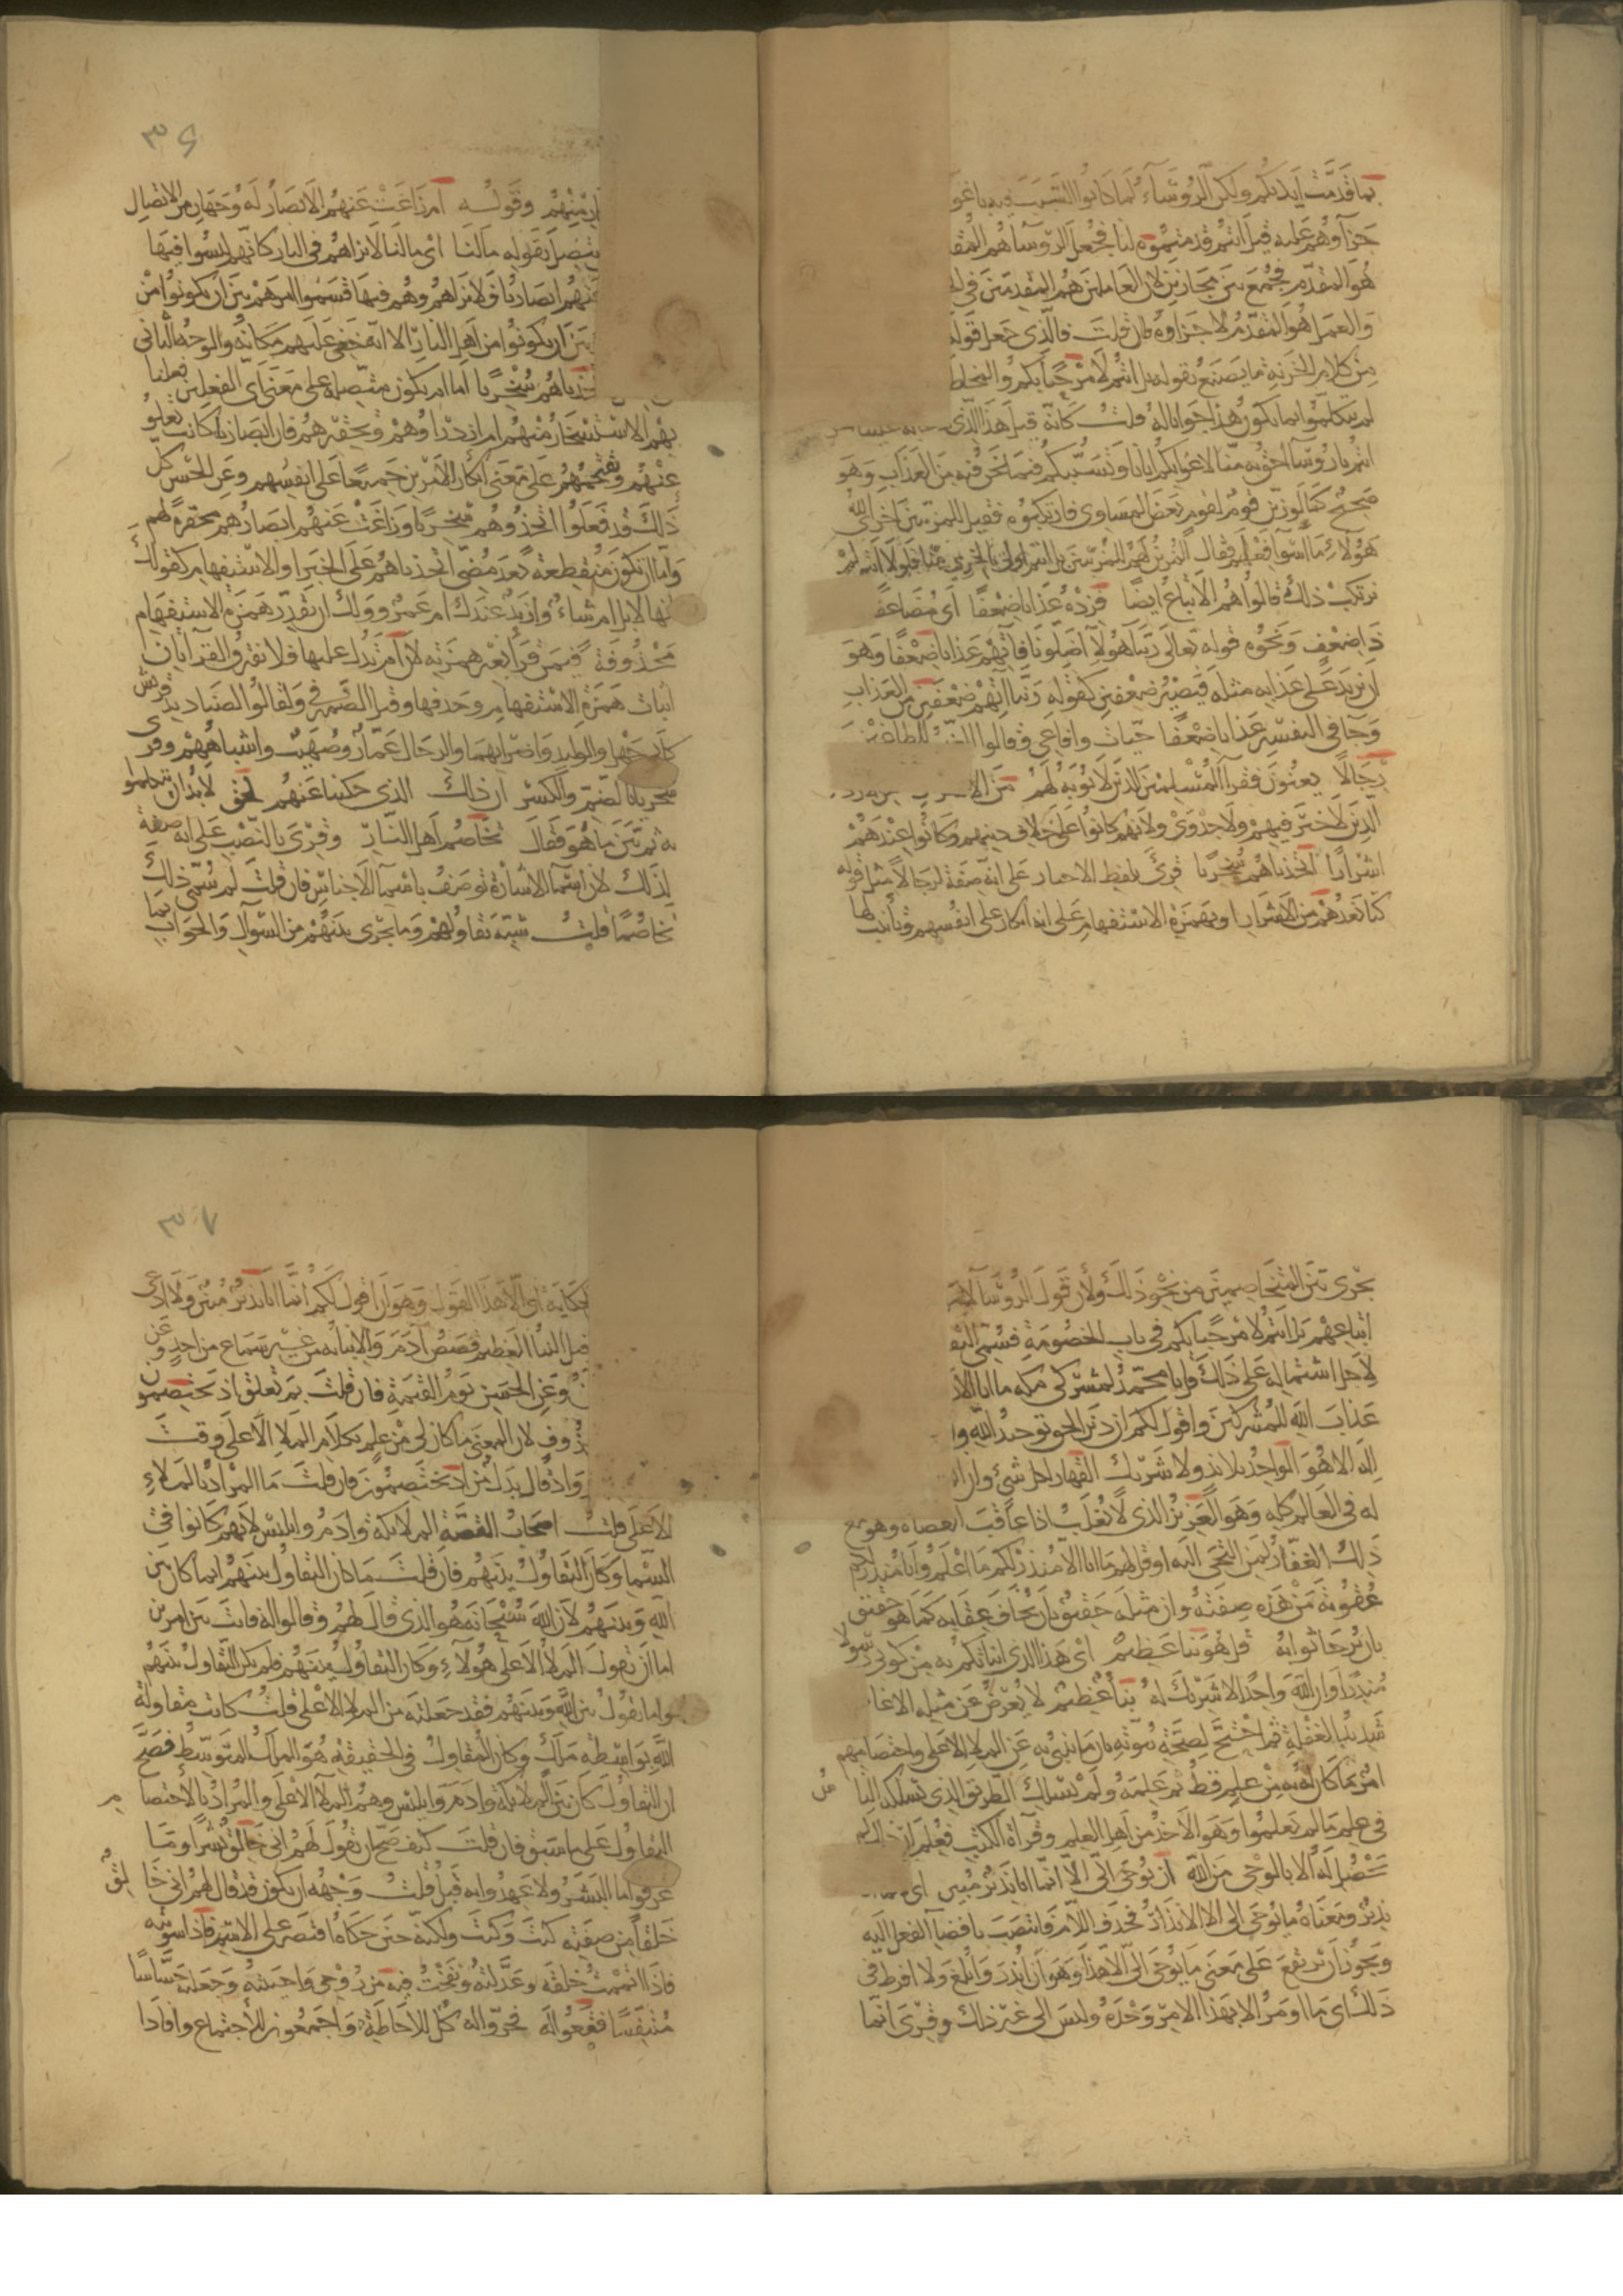 بما قدمت ايديكم ولكن الرؤساء لما كانوا السبب فيه باغوا
جزاوهم عليه قيل انتم قدمتموه لنا فجعل الرؤسا هم المقد
هو المقدم فجمع بين مجازين لان العاملين هم المقدمين في
والعمل هو المقدم لا جزاوه فان قلت فالذي جعل قوله
من كلام الخزنة ما يصنع بقوله بل انتم لا مرحبا بكم والمخاطب
لم يتكلموا بما يكون هذا جوابا له قلت كانه قيل هذا الذي
انتم يا رؤسا احق به منا لاغوايكم ايانا وتسببكم فيما نحن فيه من العذاب وهو
صحيح كما لو زين قوم لقوم بعض المساوى فارتكبوه فقيل للمزينين اخزى الله
هؤلاء ما اسوا فعلهم فقال المزين لهم للمزينين بل انتم اولى بالخزي منا فلولا انتم لم
نرتكب ذلك قالوا هم الاتباع ايضا فزده عذابا ضعفا اى مضاعفا
ذا ضعف ونحوه قوله تعالى ربنا هولا اضلونا فاتهم عذابا ضعفا وهو
ان يزيد على عذابه مثله فيصير ضعفين كقوله ربنا اتهم ضعفين من العذاب
وجا في التفسير عذابا ضعفا حيات وافاعي وقالوا
رجالا يعنون فقرا المسلمين الذين لا يوبه لهم من
الذين لا خير فيهم ولا جدوى ولانهم كانوا على خلاف دينهم وكانوا عندهم
اشرارا اتخذناهم سخريا قرئ بلفظ الاخبار على انه صفة لرجالا مثل قوله
كنا نعدهم من الاشرار وبهمزة الاستفهام على انه انكار على انفسهم وتانيب لها
٣٦
منهم وقوله ام زاغت عنهم الابصار له وجهان من الاتصال
يتصل بقوله مالنا اى مالنا لا نراهم في النار كانهم ليسوا فيها
عنهم ابصارنا فلا نراهم وهم فيها قسموا امرهم بين ان يكونوا من
بين ان يكونوا من اهل النار الا انه خفي عليهم مكانهم والوجه الثاني
اتخذناهم سخريا اما ان يكون متصلة على معنى اى الفعلين فعلنا
بهم الاستسخار منهم ام ازدراوهم وتحقيرهم فان ابصارنا كانت تعلوا
عنهم وتقتحمهم على معنى انكار الامرين جميعا على انفسهم وعن الحسن كل
ذلك قد فعلوا اتخذوهم سخريا وزاغت عنهم ابصارهم محقرة لهم
واما ان تكون منقطعة بعد مضي اتخذناهم على الخبر او الاستفهام كقولك
انها لابل ام شاء وازيد عندك ام عمرو ولك ان تقدر همزة الاستفهام
محذوفة فيمن قرا بغير همزته لان ام تدل عليها فلا تفترق القراتان
اثبات همزة الاستفهام وحذفها وقيل الضمير في وقالوا لصناديد قريش
كابي جهل والوليد واضرابهما والرجال عمار وصهيب واشباههم وقرى
سخريا بالضم والكسر ان ذلك الذي حكينا عنهم لحق لا بد ان يتكلموا
به ثم بين ما هو فقال تخاصم اهل النار وقرئ بالنصب على انه صفة
لذلك لان اسما الاشارة توصف باسما الاجناس فان قلت لم سمى ذلك
تخاصما قلت شبه تقاولهم وما يجرى بينهم من السوال والجواب بما
يجرى بين المتخاصمين من نحو ذلك ولان قول الرؤسا لا
اتباعهم بل انتم لا مرحبا بكم في باب الخصومة فسمى التقا
لاجل اشتماله على ذلك قل يا محمد لمشركي مكة ما انا الا
عذاب الله للمشركين واقول لكم ان دين الحق توحيد الله وا
اله الا هو الواحد بلا ند ولا شريك القهار لكل شئ وان
له في العالم كله وهو العزيز الذي لا يغلب اذا عاقب العصاة وهو مع
ذلك الغفار لمن التجى اليه او قل لهم ما انا الا منذر لكم ما اعلم وانا انذركم
عقوبة من هذه صفته وان مثله حقيق بان يخاف عقابه كما هو حقيق
بان يرجا ثوابه قل هو نبا عظيم اى هذا الذي انباتكم به من كوني رسولا
منذرا وان الله واحد لا شريك له نبا عظيم لا يعرض عن مثله الا غا
شديد الغفلة ثم احتج لصحة نبوته بان ما ينبى به عن الملا الاعلى واختصامهم
امر ما كان له به من علم قط ثم علمه ولم يسلك الطريق الذي تسلكه الناس
في علم ما لم يعلموا وهو الاخذ من اهل العلم وقراة الكتب فعلم ان ذلك لم
يحصل له الا بالوحي من الله ان يوحى الي الا انما انا نذير مبين اى
نذير ومعناه ما يوحى الى الا للانذار فحذف اللام وانتصب بافضا الفعل اليه
ويجوز ان يرتفع على معنى ما يوحى الي الا هذا وهو ان انذر وابلغ ولا افرط في
ذلك اى ما اومر الا بهذا الامر وحده وليس الى غير ذلك وقرى انما
٣٧
حكاية اى الا هذا القول وهو ان اقول لكم انما انا نذير مبين ولا ادعى
قيل النبا العظيم قصص ادم والانبا به من غير سماع من احد وعن
وعن الحسن يوم القيمة فان قلت بم تعلق اذ يختصمون
محذوف لان المعنى ما كان لي من علم بكلام الملا الاعلى وقت
واذ قال بدل من اذ يختصمون فان قلت ما المراد بالملاء
الاعلى قلت اصحاب القصة الملائكة وادم وابليس لانهم كانوا في
السما وكان التقاول بينهم فان قلت ما كان التقاول بينهم انما كان بين
الله وبينهم لان الله سبحانه هو الذي قال لهم وقالوا له فانت بين امرين
اما ان تقول الملا الاعلى هولاء وكان التقاول بينهم فلم يكن التقاول بينهم
واما تقول بين الله وبينهم فقد جعلته من الملا الاعلى قلت كانت مقاولة
الله بواسطة ملك وكان المقاول في الحقيقة هو الملك المتوسط فصح
ان التقاول كان بين الملائكة وادم وابليس وهم الملا الاعلى والمراد بالاختصام
التقاول على ما سبق فان قلت كيف صح ان يقول لهم اني خالق بشرا وما
عرفوا ما البشر ولا عهدوا به قبل قلت وجهه ان يكون قد قال لهم اني خالق
خلقا من صفته كيت وكيت ولكنه حين حكاه اقتصر على الاسم فاذا سويته
فاذا اتممت خلقه وعدلته ونفخت فيه من روحي واحييته وجعلته حساسا
متنفسا فقعوا له فخروا له كل للاحاطة واجمعون للاجتماع وافادا